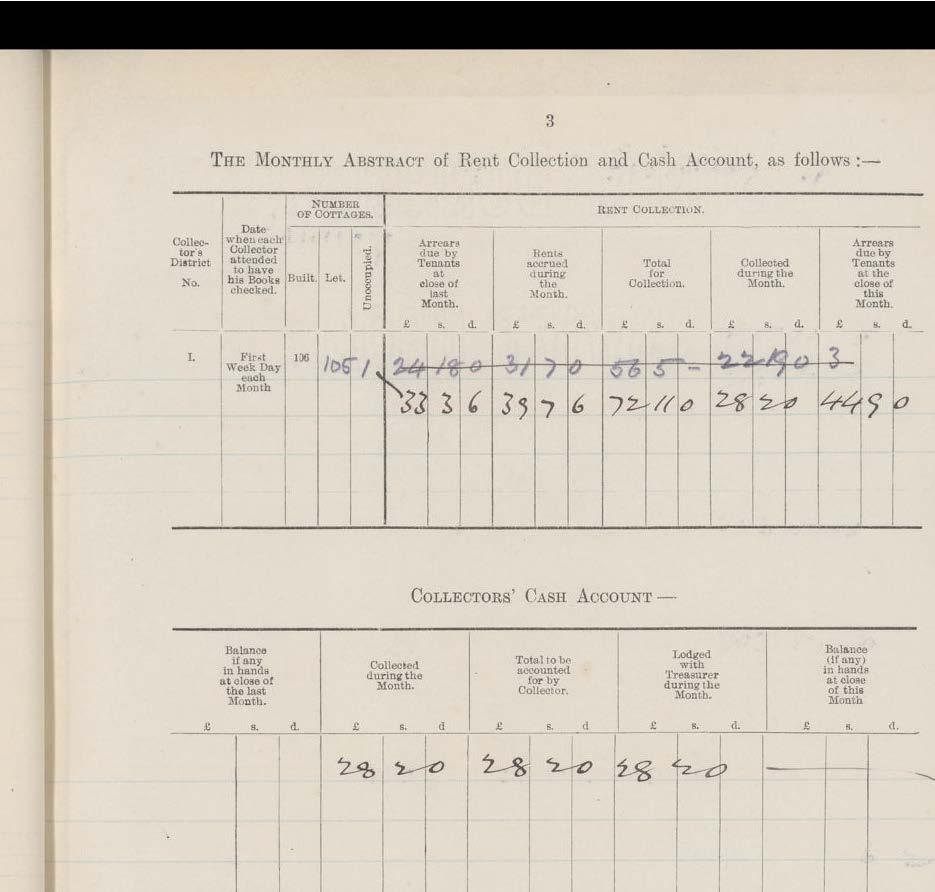 3
THE MONTHLY ABSTRACT of Rent Collection and Cash Account, as follows :—
Collec-tor's District No.
Date when each Collector attended to have his Books checked.
NUMBER OF COTTAGES.
Built. Let. Unoccupied.
RENT COLLECTION.
Arrears due by Tenants at close of last Month.
Rents accrued during the Month.
Total for Collection.
Collected during the Month.
Arrears due by Tenants at the close of this Month.
£ s. d. £ s. d. £ s. d. £ s. d. £ s. d.
I. First Week Day each Month 106 105 1 24 18 0 31 7 0 56 5 – 22 19 0 3
33 3 6 39 7 6 72 11 0 28 2 0 44 9 0
COLLECTORS' CASH ACCOUNT —
Balance if any in hands at close of the last Month.
Collected during the Month.
Total to be accounted for by Collector.
Lodged with Treasurer during the Month.
Balance (if any) in hands at close of this Month
£ s. d. £ s. d £ s. d £ s. d. £ s. d.
28 2 0 28 2 0 28 2 0 —